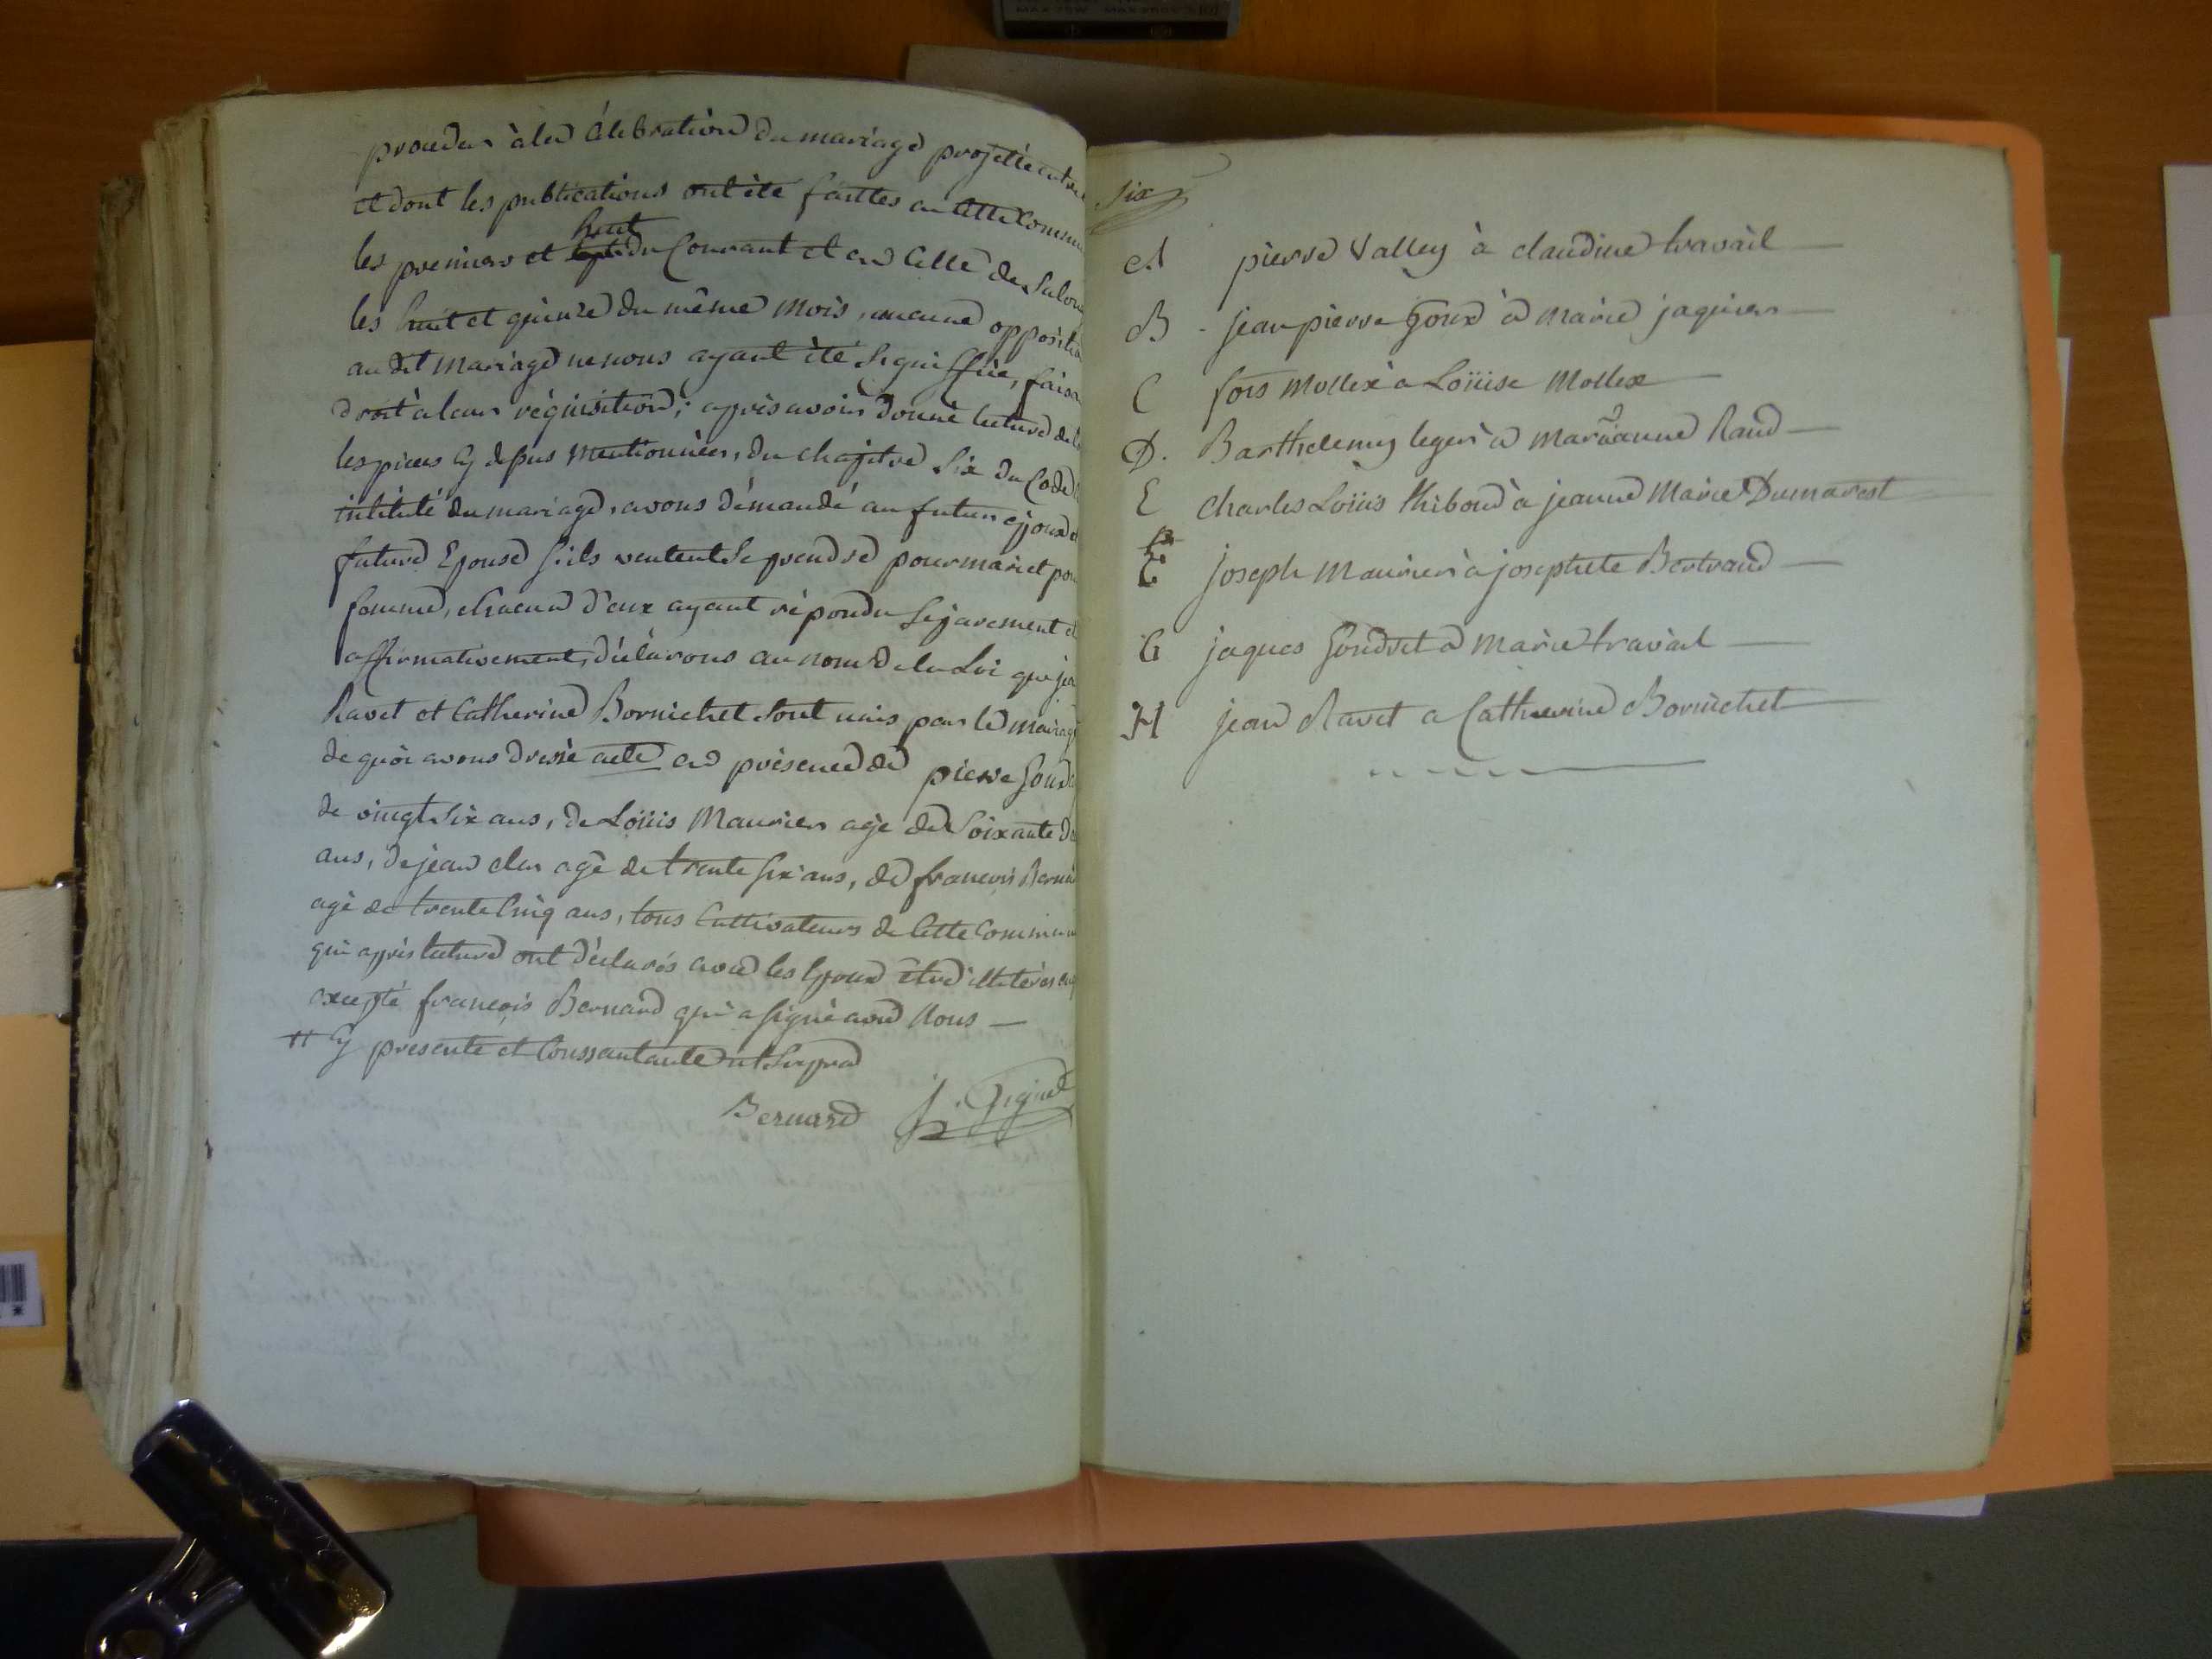 proceder à la Célebration du mariage projetté entre
et dont les publications ont été faittes en Cette Commu
huit
les premiers et du Courant et en Celle de
les huit et quinze du même mois, aucune oppositi
au dit mariage ne nous ayant été signiffiée, faisa
droit à leur réquisition; après avoir donné lecture de
les pieces Cy dessus mentionnées, du chapitre Six du Code
intitulé du mariage, avons demandé au futur époux et
future Epouse s'ils veulent se prendre pour mari et pou
femme, chacun d'eux ayant répondu Séparement et
affirmativement, déclarons au nom de la Loi que jea
Ravet et Catherine Bornichet Sont unis par le mariag
de quoi avons dressé acte en présence de pierre Goux
de vingt Six ans, de Loüis Maurier agé de Soixante
ans, de jean agé de trente Six ans, de francois Berna
agé de trente Cinq ans, tous Cultivateurs de Cette Commun
qui après lecture ont déclarés avec les Epoux être illitérés
excepté francois Bernard qui a signé avec Nous —
# Cy presente et Conssantante ut Supra
Bernard J. Gignet
Six
A pierre Valley à claudine travail —
B - jean pierre Goux à marie jaquier —
C fois Mollex a Loüise Mollex —
D. Barthelemy leger à Marianne Raud —
E charles Loüis thiboud à jeanne Marie Dumarest
joseph Maurier à josephete Bertrand —
G jaques Gondret à Marie travail —
H jean Ravet a Catherine Bornichet